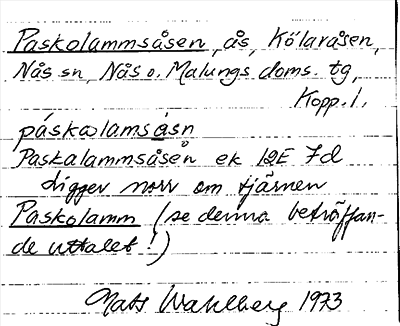 Paskolammsåsen, ås, Kölaråsen,
Nås sn, Nås o. Malungs doms. tg,
Kopp. l.
páskωlamsåsn
Paskalammsåsen ek 12E 7d
ligger norr om tjärnen
Paskolamm (se denna beträffan-
de uttalet!)
Mats Wahlberg 1973